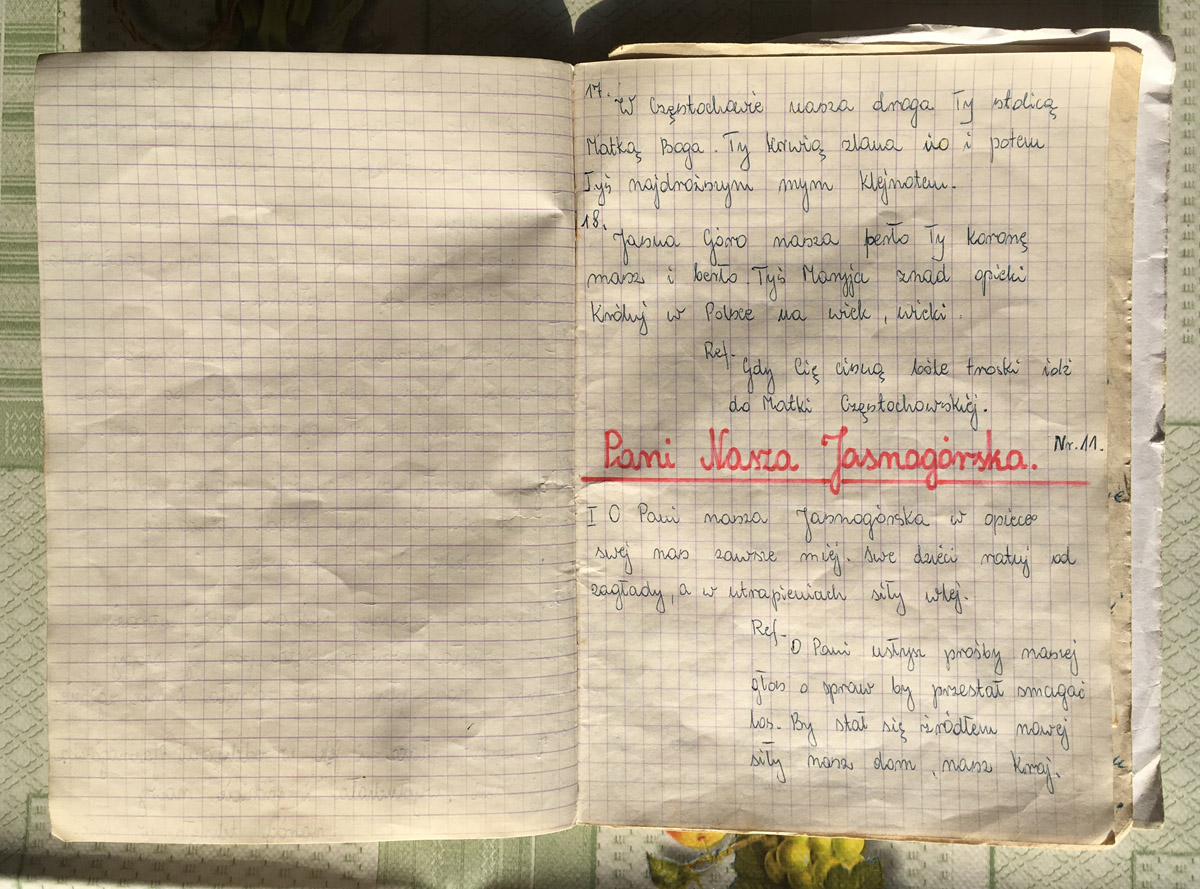 17.
W Częstochowie nasza droga Ty stolicą
Matką Boga. Ty krwią zlana i potem
Tyś najdroższym mym klejnotem.
18.
Jasna Góro nasza perło Ty koronę
masz i berło. Tyś Maryja znad opieki
Króluj w Polsce na wiek, wieki.
Ref.
Gdy Cię cisną bóle troski idź
do Matki Częstochowskiej.
Nr.11.
Pani Nasza Jasnogórska.
I O Pani nasza Jasnogórska w opiece
swej nas zawsze miej. Swe dzieci ratuj od
zagłady, a w utrapieniach siły wlej.
Ref-
O Pani usłysz prośby naszej
głos o spraw by przestał smagać
los. By stał się źródłem nowej
siły nasz dom, nasz kraj.